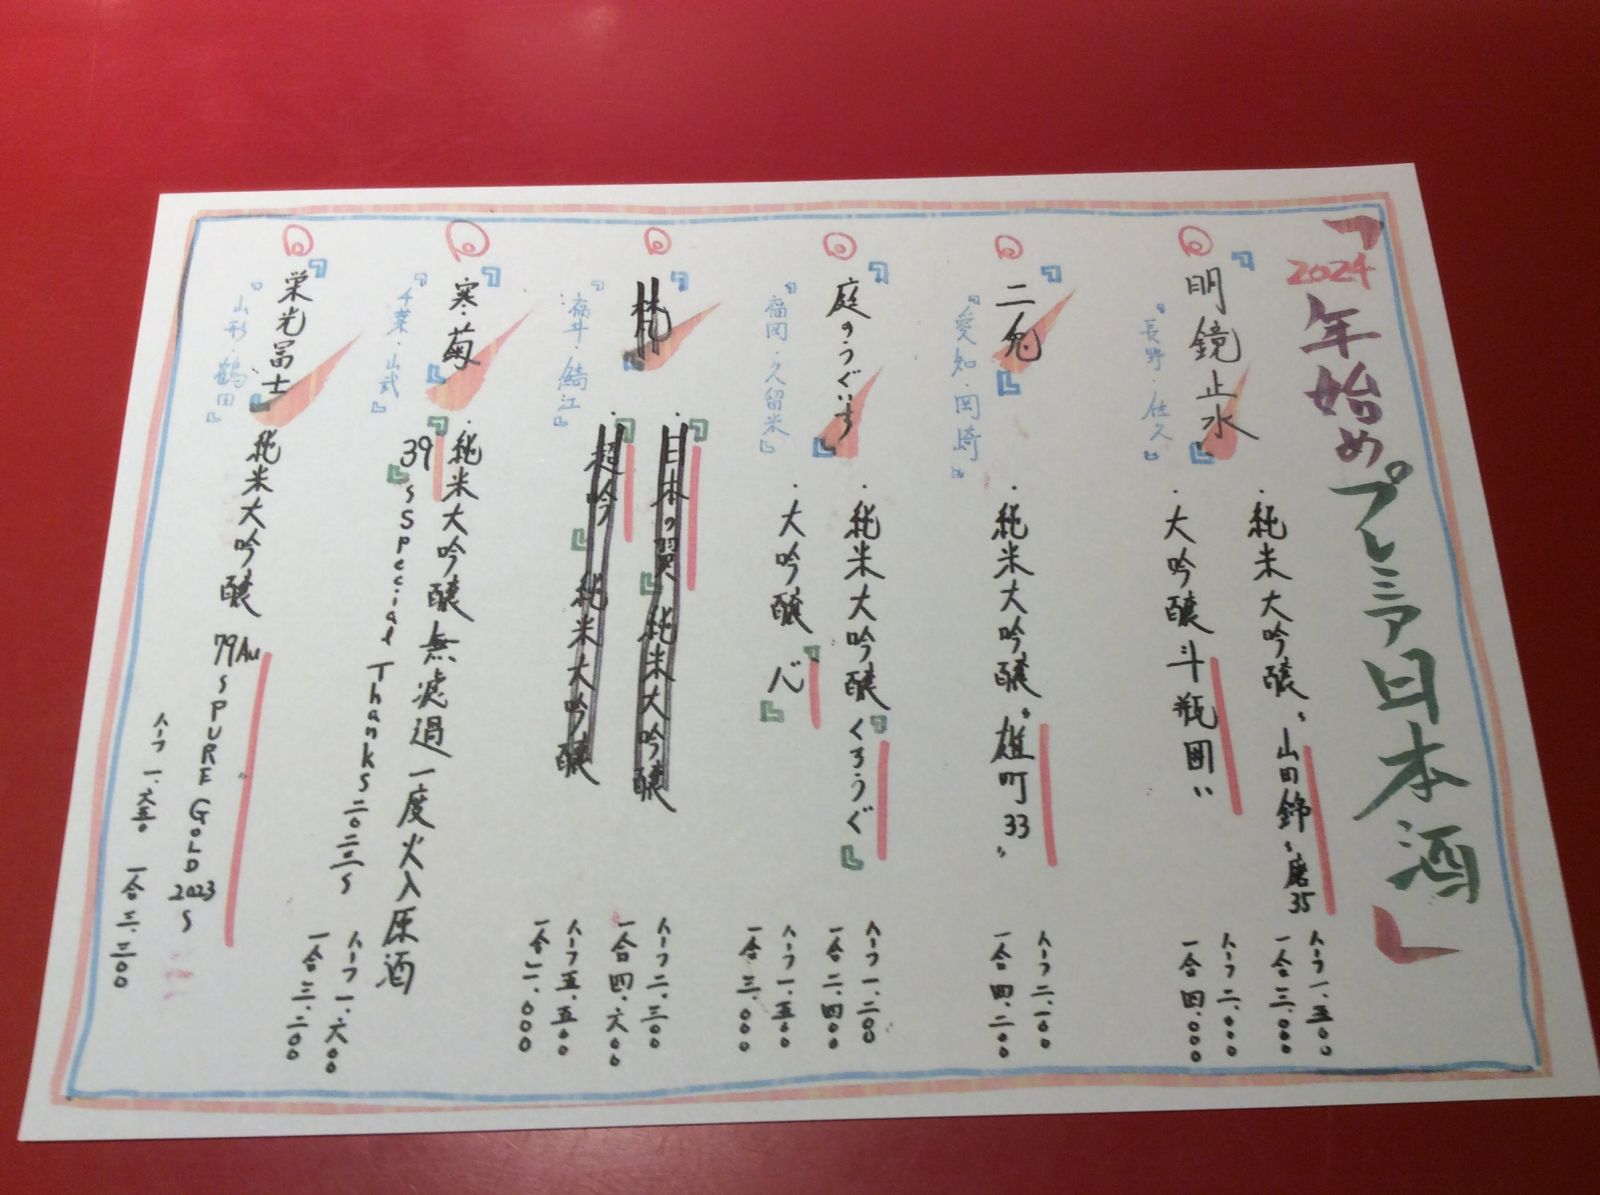 「2024年始めプレミア日本酒」
『明鏡止水』
『長野・佐久』
・純米大吟醸〝山田錦〟磨35
ハーフ一、五〇〇
一合三、〇〇〇
・大吟醸斗瓶囲い
ハーフ二、〇〇〇
一合四、〇〇〇
『二兎』
『愛知・岡崎』
・純米大吟醸〝雄町33〟
ハーフ二、一〇〇
一合四、二〇〇
『庭のうぐいす』
『福岡・久留米』
・純米大吟醸『くろうぐ』
ハーフ一、二〇〇
一合二、四〇〇
・大吟醸『心』
ハーフ一、五〇〇
一合三、〇〇〇
『梵』
『福井・鯖江』
・『日本の翼』純米大吟醸
ハーフ二、三〇〇
一合四、六〇〇
・『超吟』純米大吟醸
ハーフ五、五〇〇
一合一一、〇〇〇
『寒菊』
『千葉・山武』
・純米大吟醸無濾過一度火入原酒
『39』~Special Thanks二〇二三~
ハーフ一、六〇〇
一合三、二〇〇
『栄光冨士』
『山形・鶴田』
純米大吟醸 79Au
~PURE GOLD 2023~
ハーフ一、六五〇 一合三、三〇〇